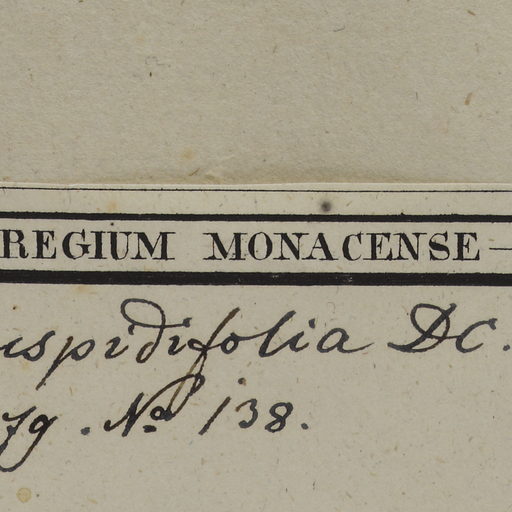 REGIUM MONACENSE —
uspidifolia DC.
79. No 138.